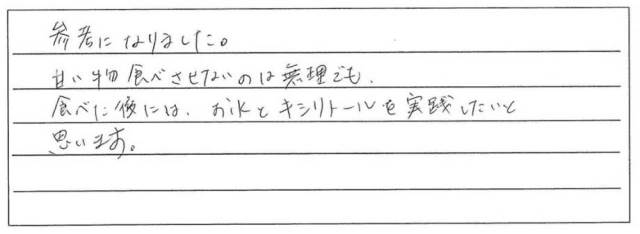 参考になりました。
甘い物食べさせないのは無理でも、
食べた後には、お水とキシリトールを実践したいと
思います。